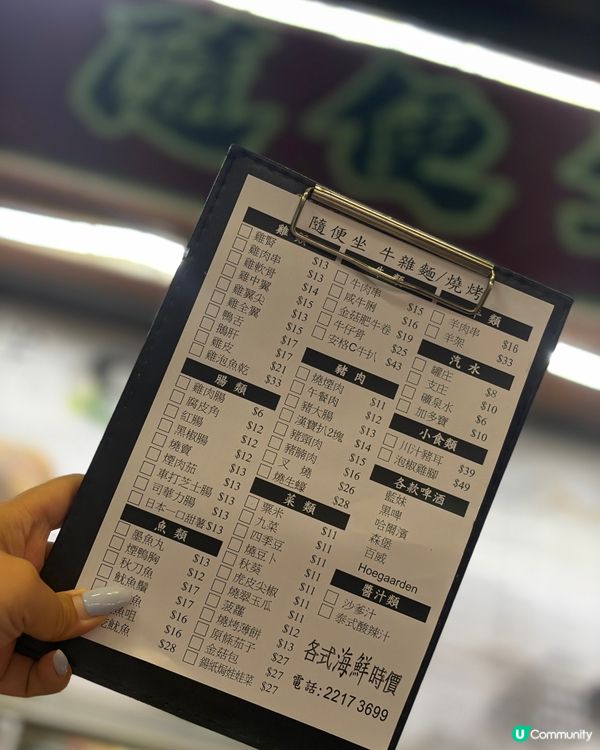 隨便
隨便坐 牛雜麵/燒烤
雞腎 $13
雞肉串 $13
雞軟骨 $14
雞中翼 $15
雞翼尖 $13
雞全翼 $15
鴨舌 $17
鵝肝 $17
雞皮 $21
雞泡魚乾 $33
腸類
雞肉腸 $6
腐皮角 $12
紅腸 $12
黑椒腸 $12
燒賣 $13
煙肉茄 $13
車打芝士腸 $13
司華力腸 $13
日本一口甜薯 $13
魚類
墨魚丸 $13
煙鴨胸 $12
秋刀魚 $17
魷魚鬚 $17
$16
$16
魷魚 $28
牛肉串 $15
咸牛脷 $16
金菇肥牛卷 $19
牛仔骨 $25
安格C牛扒 $43
豬肉
燒煙肉 $11
午餐肉 $12
豬大腸 $13
漢寶扒2塊 $14
豬頸肉 $15
豬腩肉 $16
叉燒 $26
燒生蠔 $28
菜類
粟米 $11
九菜 $11
四季豆 $11
燒豆卜 $11
秋葵 $11
虎皮尖椒 $11
燒翠玉瓜 $11
菠蘿 $12
燒烤薄餅 $13
原條茄子 $27
金菇包 $27
錫紙焗娃娃菜 $27
類
羊肉串 $16
羊架 $33
汽水
罐庄 $8
支庄 $10
礦泉水 $6
加多寶 $10
小食類
川汁豬耳 $39
泡椒雞腳 $49
各款啤酒
藍妹
黑啤
哈爾濱
森堡
百威
Hoegaarden
醬汁類
沙爹汁
泰式酸辣汁
各式海鮮時價
電話:2217 3699
U Community